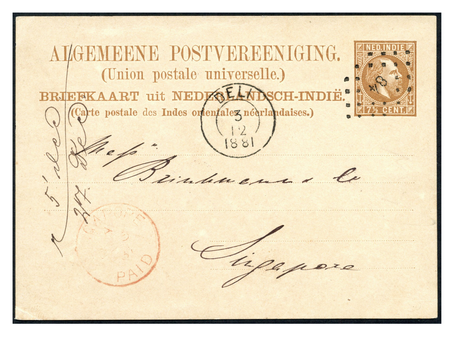 ALGEMEENE POSTVEREENIGING.
(Union postale universelle.)
BRIEFKAART uit NEDERLANDSCH-INDIË.
(Carte postale des Indes orientales néerlandaises.)
NED. INDIE
7½ CENT.
DELI
3
12
1881
Messrs
Brinkmann & Co
Singapore
PAID